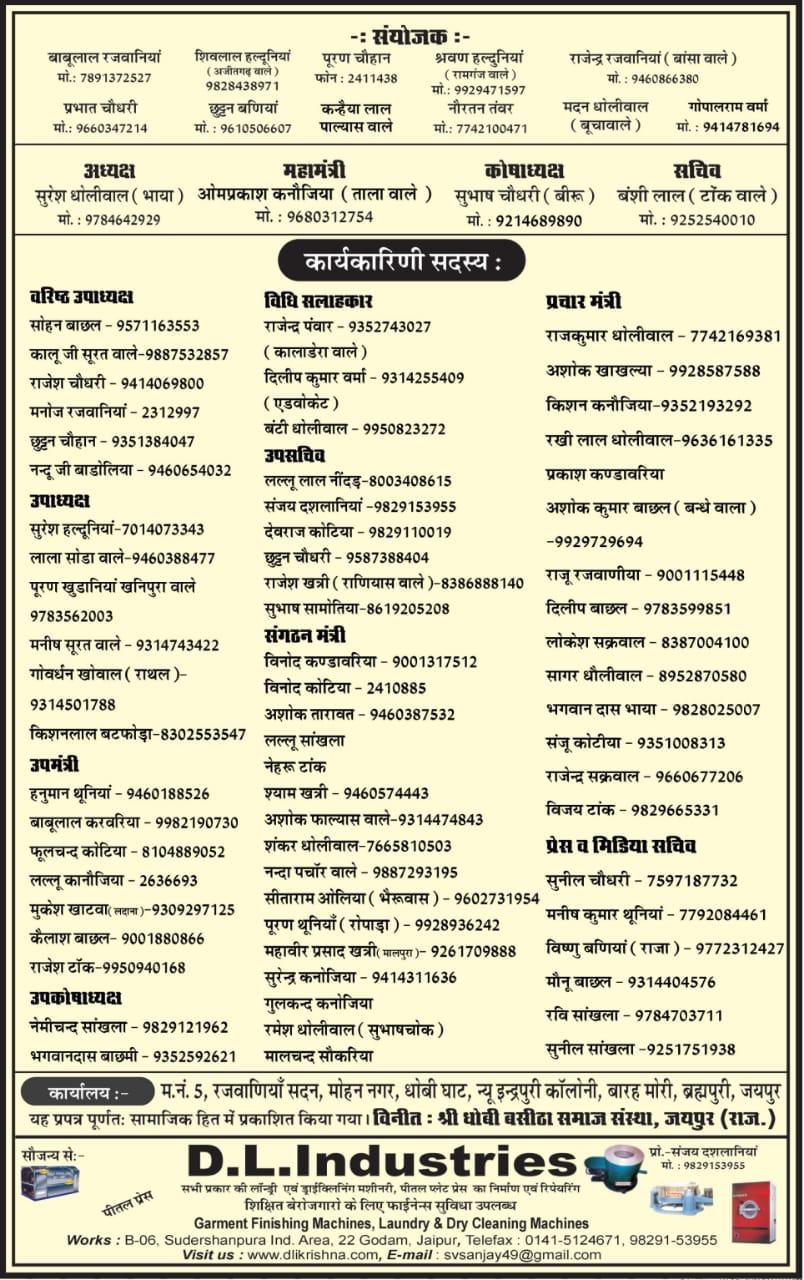 -: संयोजक :-
बाबूलाल रजवानियां
मो.: 7891372527
शिवलाल हल्दूनियां
(अजीतगढ़ वाले)
9828438971
पूरण चौहान
फोन : 2411438
श्रवण हल्दुनियां
(रामगंज वाले)
मो.: 9929471597
राजेन्द्र रजवानियां ( बांसा वाले )
मो. : 9460866380
प्रभात चौधरी
मो.: 9660347214
छुट्टन बणियां
मो. : 9610506607
कन्हैया लाल
पाल्यास वाले
नौरतन तंवर
मो.: 7742100471
मदन धोलीवाल
( बूचावाले )
गोपालराम वर्मा
मो. : 9414781694
अध्यक्ष
सुरेश धोलीवाल ( भाया )
मो. : 9784642929
महामंत्री
ओमप्रकाश कनौजिया ( ताला वाले )
मो. : 9680312754
कोषाध्यक्ष
सुभाष चौधरी ( बीरू )
मो. : 9214689890
सचिव
बंशी लाल ( टोंक वाले )
मो. : 9252540010
कार्यकारिणी सदस्य :
वरिष्ठ उपाध्यक्ष
सोहन बाछल - 9571163553
कालू जी सूरत वाले-9887532857
राजेश चौधरी - 9414069800
मनोज रजवानियां - 2312997
छुट्टन चौहान - 9351384047
नन्दू जी बाडोलिया - 9460654032
उपाध्यक्ष
सुरेश हल्दूनियां-7014073343
लाला सोडा वाले-9460388477
पूरण खुडानियां खनिपुरा वाले
9783562003
मनीष सूरत वाले - 9314743422
गोवर्धन खोवाल ( राथल )-
9314501788
किशनलाल बटफोड़ा-8302553547
उपमंत्री
हनुमान थूनियां - 9460188526
बाबूलाल करवरिया - 9982190730
फूलचन्द कोटिया - 8104889052
लल्लू कानौजिया - 2636693
मुकेश खाटवा( लदाना )-9309297125
कैलाश बाछल- 9001880866
राजेश टॉक-9950940168
उपकोषाध्यक्ष
नेमीचन्द सांखला - 9829121962
भगवानदास बाछमी - 9352592621
विधि सलाहकार
राजेन्द पंवार - 9352743027
( कालाडेरा वाले )
दिलीप कुमार वर्मा - 9314255409
( एडवोकेट )
बंटी धोलीवाल - 9950823272
उपसचिव
लल्लू लाल नींदड़-8003408615
संजय दशलानियां -9829153955
देवराज कोटिया - 9829110019
छुट्टन चौधरी - 9587388404
राजेश खत्री ( राणियास वाले )-8386888140
सुभाष सामोतिया-8619205208
संगठन मंत्री
विनोद कण्डावरिया - 9001317512
विनोद कोटिया - 2410885
अशोक तारावत - 9460387532
लल्लू सांखला
नेहरू टांक
श्याम खत्री - 9460574443
अशोक फाल्यास वाले-9314474843
शंकर धोलीवाल-7665810503
नन्दा पचॉर वाले - 9887293195
सीताराम ओलिया ( भैरूवास ) - 9602731954
पूरण थूनियाँ ( रोपाड़ा ) - 9928936242
महावीर प्रसाद खत्री( मालपुरा )- 9261709888
सुरेन्द्र कनोजिया - 9414311636
गुलकन्द कनोजिया
रमेश धोलीवाल ( सुभाषचोक )
मालचन्द सौकरिया
प्रचार मंत्री
राजकुमार धोलीवाल - 7742169381
अशोक खाखल्या - 9928587588
किशन कनौजिया-9352193292
रखी लाल धोलीवाल-9636161335
प्रकाश कण्डावरिया
अशोक कुमार बाछल ( बन्धे वाला )
-9929729694
राजू रजवाणीया - 9001115448
दिलीप बाछल - 9783599851
लोकेश सक्रवाल - 8387004100
सागर धौलीवाल - 8952870580
भगवान दास भाया - 9828025007
संजू कोटीया - 9351008313
राजेन्द्र सक्रवाल - 9660677206
विजय टांक - 9829665331
प्रेस व मिडिया सचिव
सुनील चौधरी - 7597187732
मनीष कुमार थूनियां - 7792084461
विष्णु बणियां ( राजा ) - 9772312427
मौनू बाछल - 9314404576
रवि सांखला - 9784703711
सुनील सांखला -9251751938
कार्यालय :- म.नं. 5, रजवाणियाँ सदन, मोहन नगर, धोबी घाट, न्यू इन्द्रपुरी कॉलोनी, बारह मोरी, ब्रह्मपुरी, जयपुर
यह प्रपत्र पूर्णतः सामाजिक हित में प्रकाशित किया गया। विनीत : श्री धोबी बसीठा समाज संस्था, जयपुर (राज.)
सौजन्य से:-
पीतल प्रेस
D.L.Industries
प्रो.-संजय दशलानियां
मो. : 9829153955
सभी प्रकार की लॉन्ड्री एवं ड्राईक्लिनिंग मशीनरी, पीतल प्लेट प्रेस का निर्माण एवं रिपेयरिंग
शिक्षित बेरोजगारो के लिए फाईनेन्स सुविधा उपलब्ध
Garment Finishing Machines, Laundry & Dry Cleaning Machines
Works : B-06, Sudershanpura Ind. Area, 22 Godam, Jaipur, Telefax : 0141-5124671, 98291-53955
Visit us : www.dlikrishna.com, E-mail : svsanjay49@gmail.com